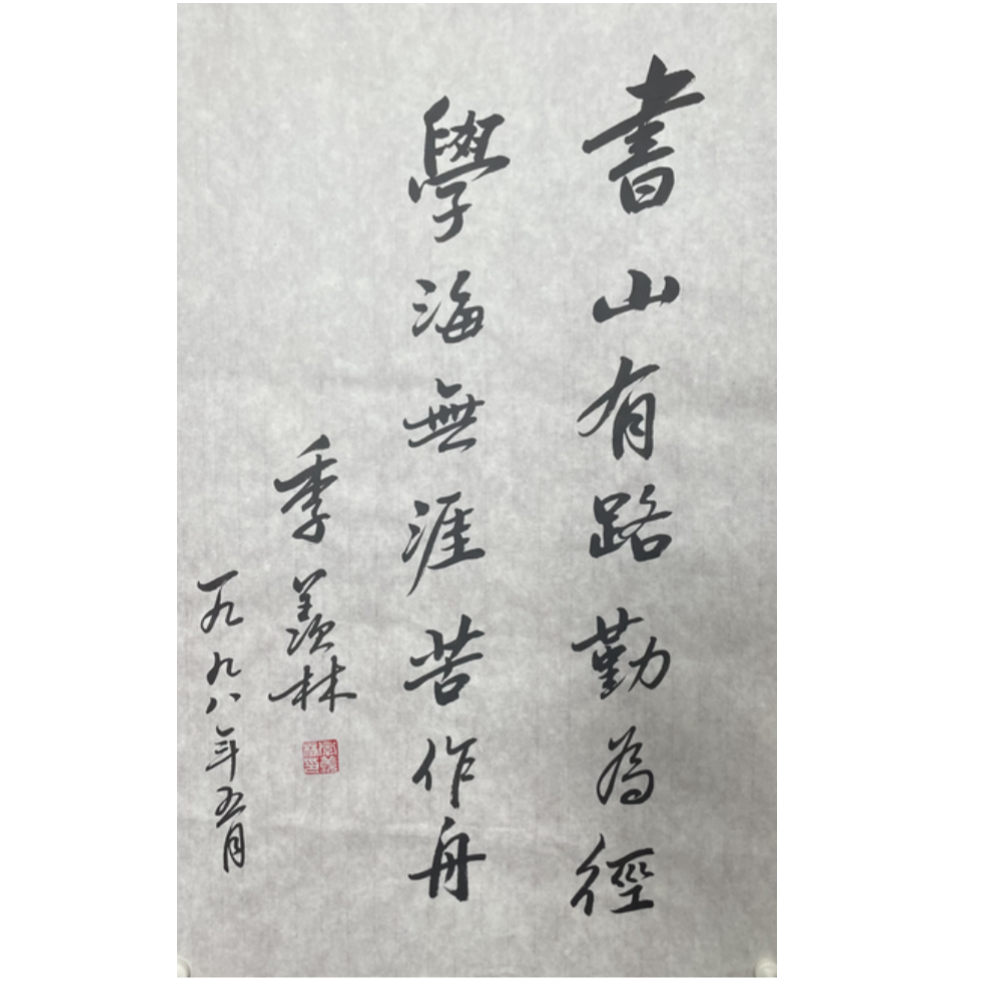 書山有路勤為徑
學海無涯苦作舟
季羨林
一九九八年五月